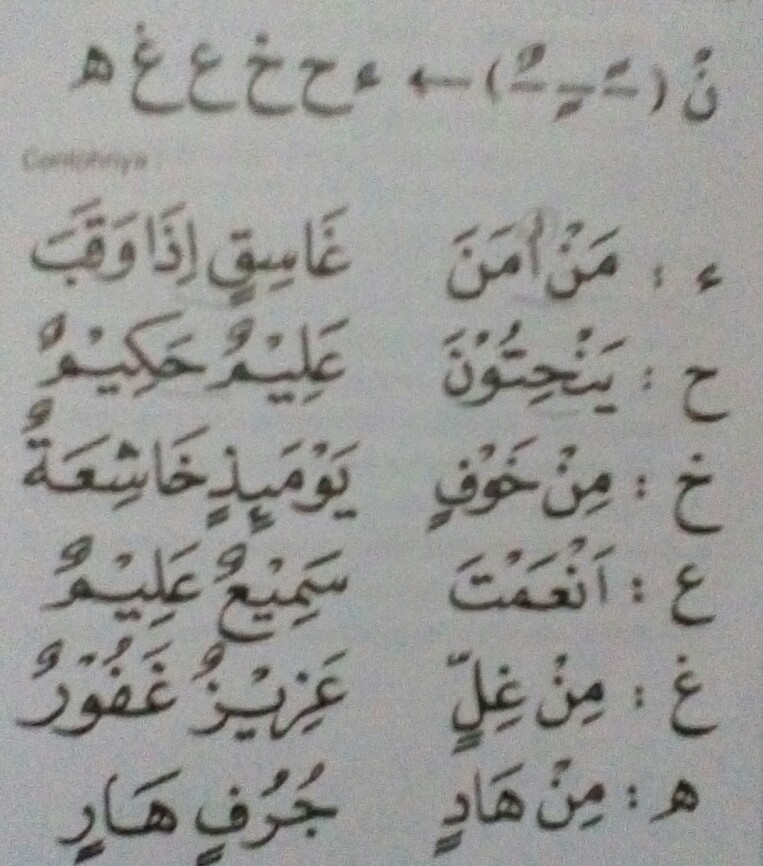 نْ (ــًــٍــٌ) ← ء ح خ ع غ ه
Contohnya :
ء : مَنْ اٰمَنَ غَاسِقٍ اِذَا وَقَبَ
ح : يَنْحِتُوْنَ عَلِيْمٌ حَكِيْمٌ
خ : مِنْ خَوْفٍ يَوْمَىِٕذٍ خَاشِعَةٌ
ع : اَنْعَمْتَ سَمِيْعٌ عَلِيْمٌ
غ : مِنْ غِلٍّ عَزِيْزٌ غَفُوْرٌ
ه : مِنْ هَادٍ جُرُفٍ هَارٍ